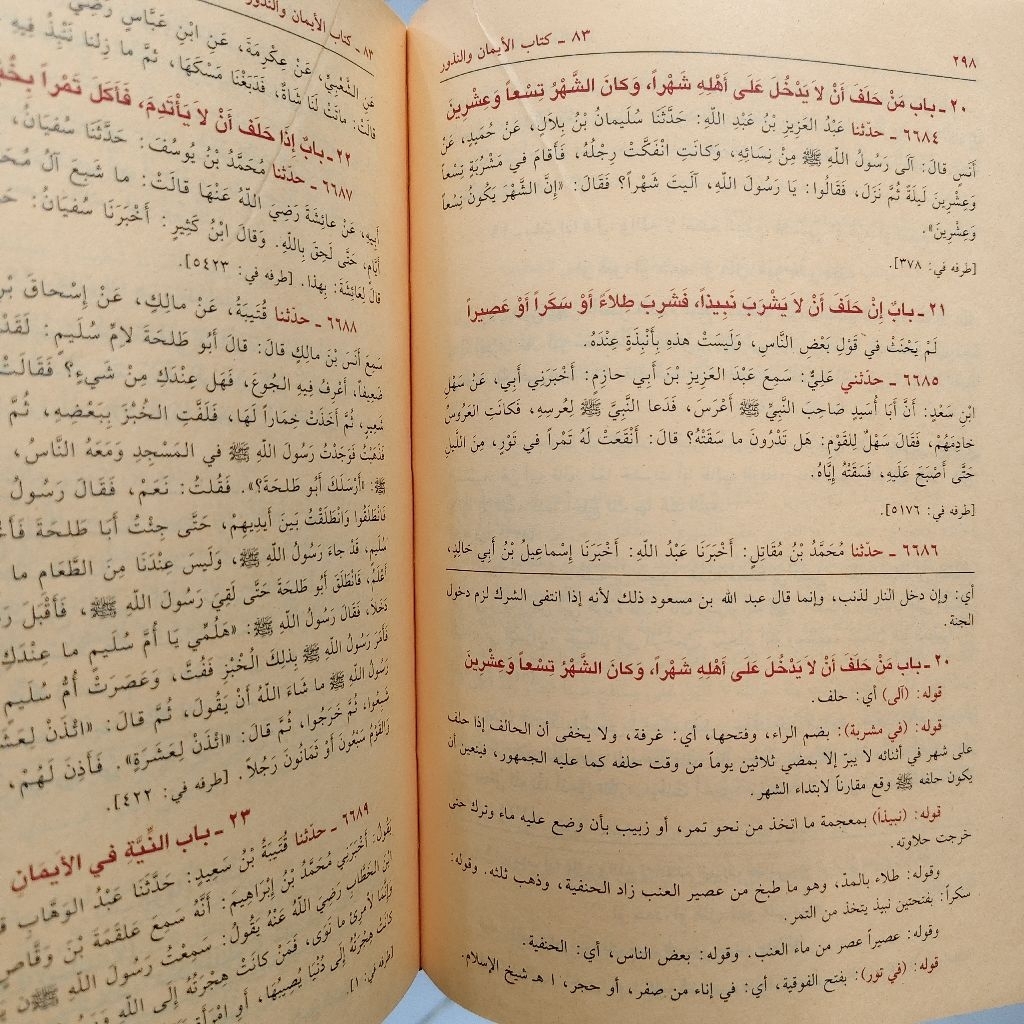 ٢٩٨
٨٣ ـ كتاب الأيمان والنذور
٢٠ ـ باب مَنْ حَلَفَ أَنْ لا يَدْخُلَ عَلَى أَهْلِهِ شَهْراً، وَكانَ الشَّهْرُ تِسْعاً وَعِشْرِينَ
٦٦٨٤ ـ حدّثنا عَبْدُ العَزِيزِ بْنُ عَبْدِ اللَّهِ: حَدَّثَنَا سُلَيمانُ بْنُ بِلاَلٍ، عَنْ حُمَيدٍ، عَنْ
أَنَسٍ قالَ: آلَى رَسُولُ اللَّهِ ﷺ مِنْ نِسَائِهِ، وَكانَتِ انْفَكَّتْ رِجْلُهُ، فَأَقامَ في مَشْرُبَةٍ تِسْعاً
وَعِشْرِينَ لَيلَةً ثُمَّ نَزَلَ، فَقَالُوا: يَا رَسُولَ اللَّهِ، آلَيتَ شَهْراً؟ فَقَالَ: «إِنَّ الشَّهْرَ يَكُونُ تِسْعاً
وَعِشْرِينَ».
[طرفه في: ٣٧٨].
٢١ ـ بابٌ إِنْ حَلَفَ أَنْ لا يَشْرَبَ نَبِيذاً، فَشَرِبَ طِلاَءً أَوْ سَكَراً أَوْ عَصِيراً
لَمْ يَحْنَثْ في قَوْلِ بَعْضِ النَّاسِ، وَلَيسَتْ هذهِ بِأَنْبِذَةٍ عِنْدَهُ.
٦٦٨٥ ـ حدّثني عَلِيٌّ: سَمِعَ عَبْدَ العَزِيزِ بْنَ أَبِي حازِمٍ: أَخْبَرَنِي أَبِي، عَنْ سَهْلِ
ابْنِ سَعْدٍ: أَنَّ أَبَا أُسَيدٍ صَاحِبَ النَّبِيِّ ﷺ أَعْرَسَ، فَدَعا النَّبِيَّ ﷺ لِعُرسِهِ، فَكانَتِ العَرُوسُ
خادِمَهُمْ، فَقَالَ سَهْلٌ لِلقَوْمِ: هَل تَدْرُونَ ما سَقَتْهُ؟ قالَ: أَنْقَعَتْ لَهُ تَمْراً في تَوْرٍ، مِنَ اللَّيلِ
حَتَّى أَصْبَحَ عَلَيهِ، فَسَقَتْهُ إِيَّاهُ.
[طرفه في: ٥١٧٦].
٦٦٨٦ ـ حدّثنا مُحَمَّدُ بْنُ مُقَاتِلٍ: أَخْبَرَنَا عَبْدُ اللَّهِ: أَخْبَرَنَا إِسْماعِيلُ بْنُ أَبِي خالِدٍ،
أي: وإن دخل النار لذنب، وإنما قال عبد الله بن مسعود ذلك لأنه إذا انتفى الشرك لزم دخول
الجنة.
٢٠ ـ باب مَنْ حَلَفَ أَنْ لا يَدْخُلَ عَلَى أَهْلِهِ شَهْراً، وَكانَ الشَّهْرُ تِسْعاً وَعِشْرِينَ
قوله: (آلى) أي: حلف.
قوله: (في مشربة): بضم الراء، وفتحها، أي: غرفة، ولا يخفى أن الحالف إذا حلف
على شهر في أثنائه لا يبرّ إلا بمضي ثلاثين يوماً من وقت حلفه كما عليه الجمهور، فيتعين أن
يكون حلفه ﷺ وقع مقارناً لابتداء الشهر.
قوله: (نبيذاً) بمعجمة ما اتخذ من نحو تمر، أو زبيب بأن وضع عليه ماء وترك حتى
خرجت حلاوته.
وقوله: طلاء بالمدّ، وهو ما طبخ من عصير العنب زاد الحنفية، وذهب ثلثه. وقوله:
سكراً: بفتحتين نبيذ يتخذ من التمر.
وقوله: عصيراً عصر من ماء العنب. وقوله: بعض الناس، أي: الحنفية.
قوله: (في تور): بفتح الفوقية، أي: في إناء من صفر، أو حجر، ا هـ شيخ الإسلام.
٨٣ ـ كتاب الأيمان والنذور
عَنِ الشَّعْبِيِّ، عَنْ عِكْرِمَةَ، عَنِ ابْنِ عَبَّاسٍ رَضِيَ
قالَتْ: ماتَتْ لَنَا شَاةٌ، فَدَبَغْنَا مَسْكَهَا، ثُمَّ ما زِلنا نَنْبِذُ فِيهِ
٢٢ ـ بابٌ إِذَا حَلَفَ أَنْ لا يَأْتَدِمَ، فَأَكَلَ تَمْراً
٦٦٨٧ ـ حدّثنا مُحَمَّدُ بْنُ يُوسُفَ: حَدَّثَنَا سُفيَانُ،
أَبِيهِ، عَنْ عائِشَةَ رَضِيَ اللَّهُ عَنْهَا قالَتْ: ما شَبِعَ آلُ
أَيَّامٍ، حَتَّى لَحِقَ بِاللَّهِ. وَقالَ ابْنُ كَثِيرٍ: أَخْبَرَنَا سُفيَانُ:
قالَ لِعَائِشَةَ: بِهذا. [طرفه في: ٥٤٢٣].
٦٦٨٨ ـ حدّثنا قُتَيبَةُ، عَنْ مالِكٍ، عَنْ إِسْحاقَ
سَمِعَ أَنَسَ بْنَ مالِكٍ قالَ: قالَ أَبُو طَلحَةَ لِأُمِّ سُلَيمٍ: لَقَدْ
ضَعِيفاً، أَعْرِفُ فِيهِ الجُوعَ، فَهَل عِنْدَكِ مِنْ شَيءٍ؟ فَقَالَتْ
شَعِيرٍ، ثُمَّ أَخَذَتْ خِماراً لَهَا، فَلَفَّتِ الخُبْزَ بِبَعْضِهِ، ثُمَّ
فَذَهَبْتُ فَوَجَدْتُ رَسُولَ اللَّهِ ﷺ في المَسْجِدِ وَمَعَهُ النَّاسُ،
ﷺ: «أَرْسَلَكَ أَبُو طَلحَةَ؟». فَقُلتُ: نَعَمْ، فَقَالَ رَسُولُ
فَانْطَلَقُوا وَانْطَلَقْتُ بَينَ أَيدِيهِمْ، حَتَّى جِئْتُ أَبَا طَلحَةَ
سُلَيمٍ، قَدْ جاءَ رَسُولُ اللَّهِ ﷺ، وَلَيسَ عِنْدَنَا مِنَ الطَّعَامِ ما
أَعْلَمُ، فَانْطَلَقَ أَبُو طَلحَةَ حَتَّى لَقِيَ رَسُولَ اللَّهِ ﷺ، فَأَقْبَلَ
دَخَلاَ، فَقَالَ رَسُولُ اللَّهِ ﷺ: «هَلُمِّي يَا أُمَّ سُلَيمٍ ما عِنْدَكِ
فَأَمَرَ رَسُولُ اللَّهِ ﷺ بِذلِكَ الخُبْزِ فَفُتَّ، وَعَصَرَتْ أُمُّ سُلَيمٍ
رَسُولُ اللَّهِ ﷺ ما شَاءَ اللَّهُ أَنْ يَقُولَ، ثُمَّ قالَ: «ائْذَنْ
شَبِعُوا، ثُمَّ خَرَجُوا، ثُمَّ قالَ: «ائْذَنْ لِعَشَرَةٍ». فَأَذِنَ لَهُمْ،
وَالقَوْمُ سَبْعُونَ أَوْ ثَمَانُونَ رَجُلاً. [طرفه في: ٤٢٢].
٢٣ ـ باب النِّيَّةِ في الأَيمَانِ
٦٦٨٩ ـ حدّثنا قُتَيبَةُ بْنُ سَعِيدٍ: حَدَّثَنَا عَبْدُ الوَهَّابِ
يَقُولُ: أَخْبَرَنِي مُحَمَّدُ بْنُ إِبْرَاهِيمَ: أَنَّهُ سَمِعَ عَلقَمَةَ بْنَ وَقَّاصٍ
ابْنَ الخَطَّابِ رَضِيَ اللَّهُ عَنْهُ يَقُولُ: سَمِعْتُ رَسُولَ اللَّهِ ﷺ
وَإِنَّمَا لاِمْرِئٍ ما نَوَى، فَمَنْ كانَتْ هِجْرَتُهُ إِلَى اللَّهِ
كانَتْ هِجْرَتُهُ إِلَى دُنْيَا يُصِيبُهَا، أَوِ امْرَأَةٍ
[طرفه في: ١].